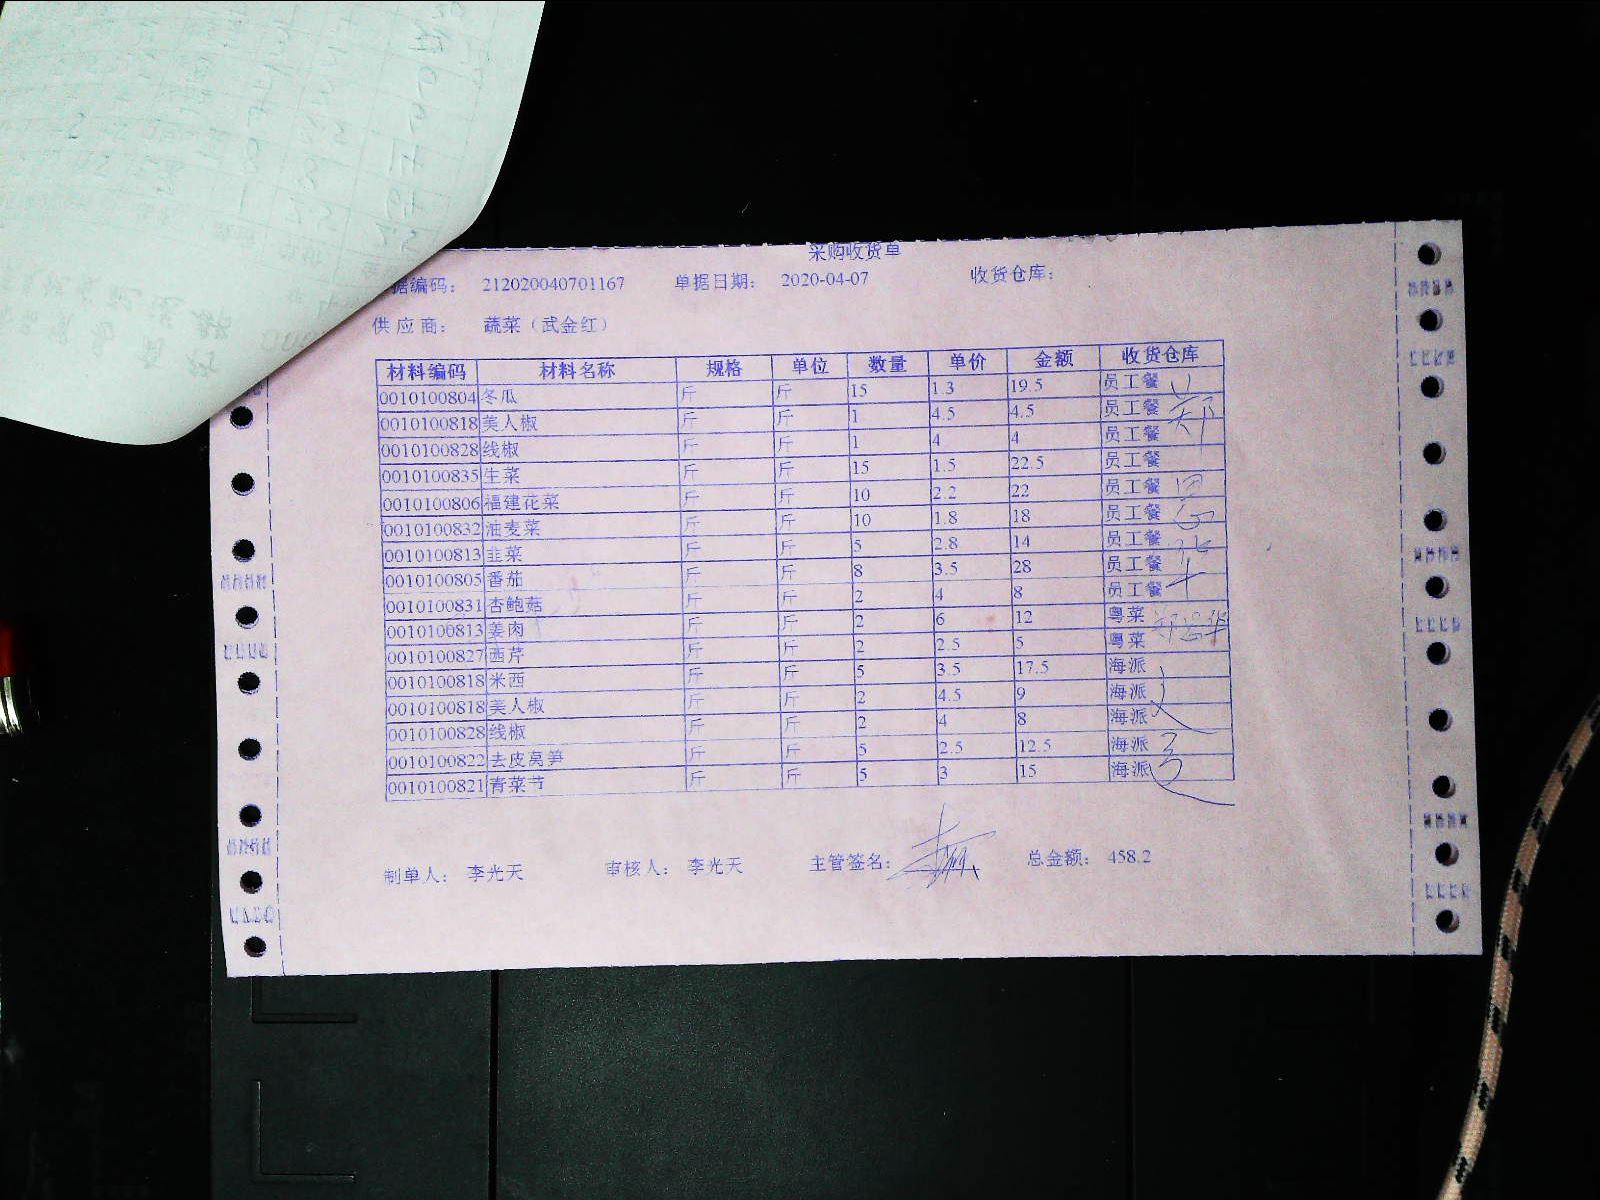 采购收货单
据编码： 212020040701167 单据日期： 2020-04-07 收货仓库：
供应商： 蔬菜（武金红）
材料编码 材料名称 规格 单位 数量 单价 金额 收货仓库
0010100804 冬瓜 斤 斤 15 1.3 19.5 员工餐
0010100818 美人椒 斤 斤 1 4.5 4.5 员工餐
0010100828 线椒 斤 斤 1 4 4 员工餐
0010100835 生菜 斤 斤 15 1.5 22.5 员工餐
0010100806 福建花菜 斤 斤 10 2.2 22 员工餐
0010100832 油麦菜 斤 斤 10 1.8 18 员工餐
0010100813 韭菜 斤 斤 5 2.8 14 员工餐
0010100805 番茄 斤 斤 8 3.5 28 员工餐
0010100831 杏鲍菇 斤 斤 2 4 8 员工餐
0010100813 姜肉 斤 斤 2 6 12 粤菜
0010100827 西芹 斤 斤 2 2.5 5 粤菜
0010100818 米西 斤 斤 5 3.5 17.5 海派
0010100818 美人椒 斤 斤 2 4.5 9 海派
0010100828 线椒 斤 斤 2 4 8 海派
0010100822 去皮莴笋 斤 斤 5 2.5 12.5 海派
0010100821 青菜节 斤 斤 5 3 15 海派
制单人： 李光天 审核人： 李光天 主管签名： 总金额： 458.2